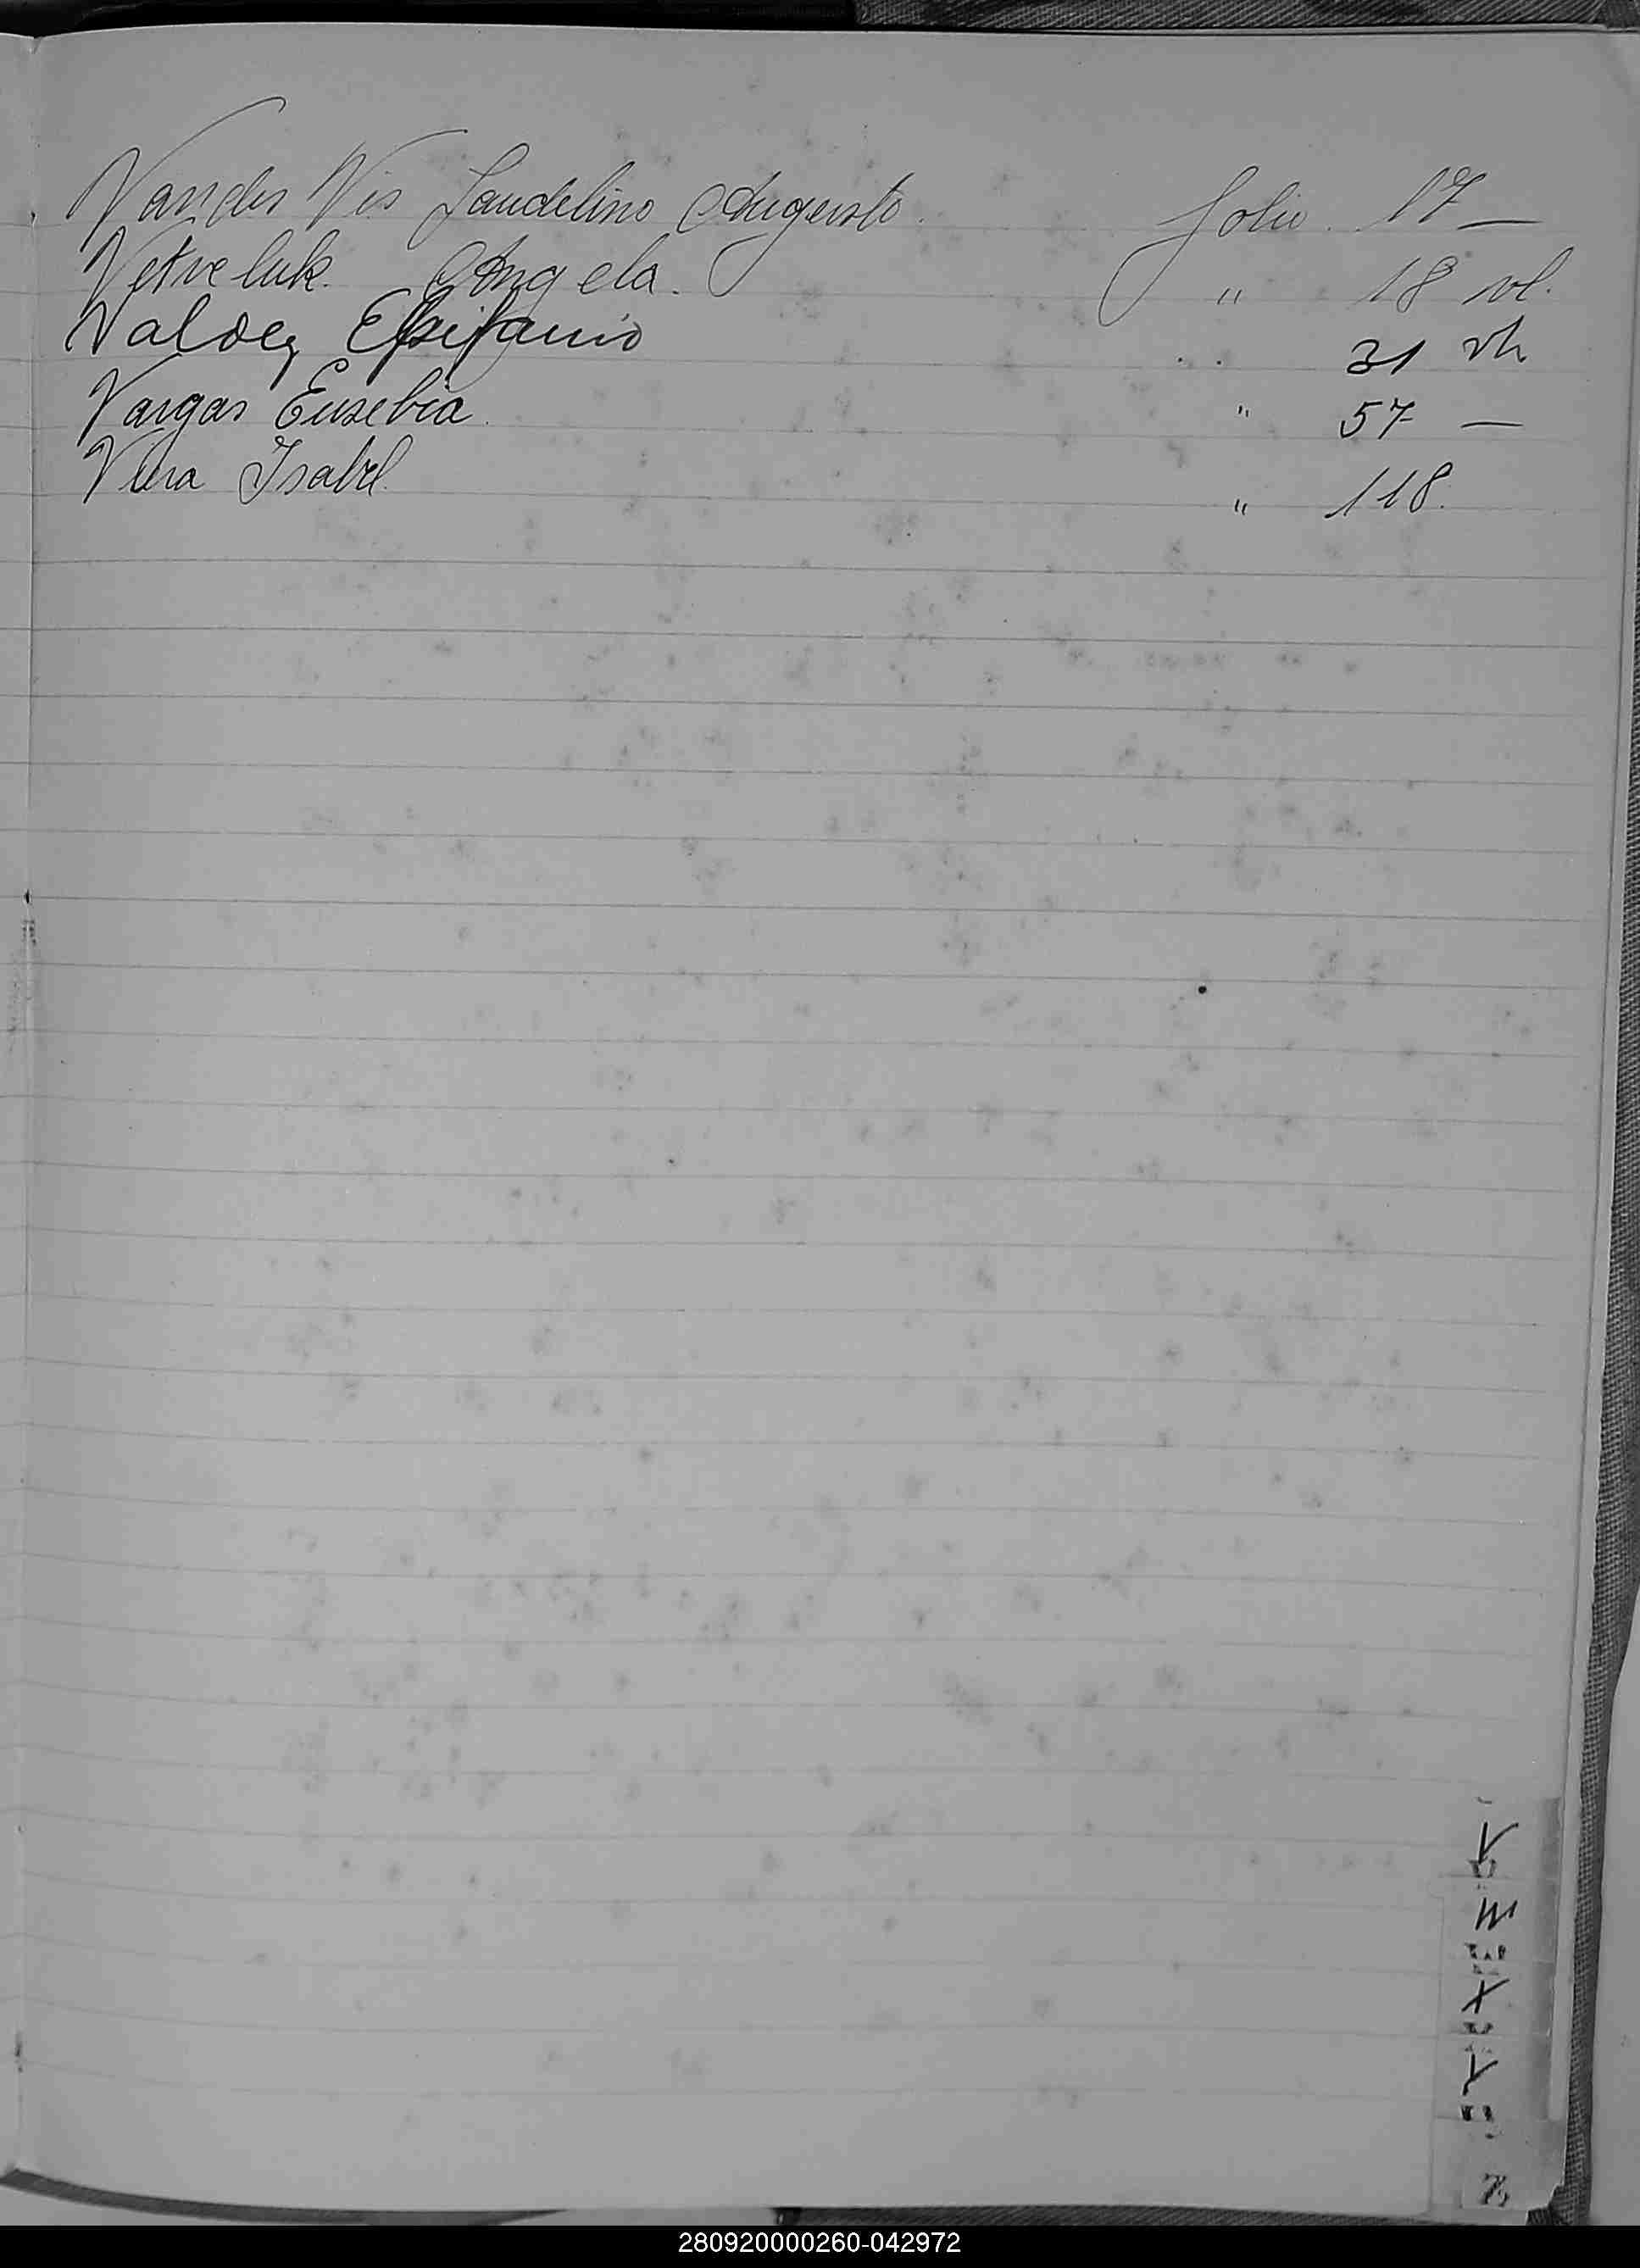 Vander Vis Landelino Augusto. folio. 17 —
Vetveluk. Angela. " 18 vl.
Valdez Epifanio " 31 vl.
Vargas Eusebia. " 57 —
Vera Isabel. " 118.
V
W
X
Y
Z
280920000260-042972